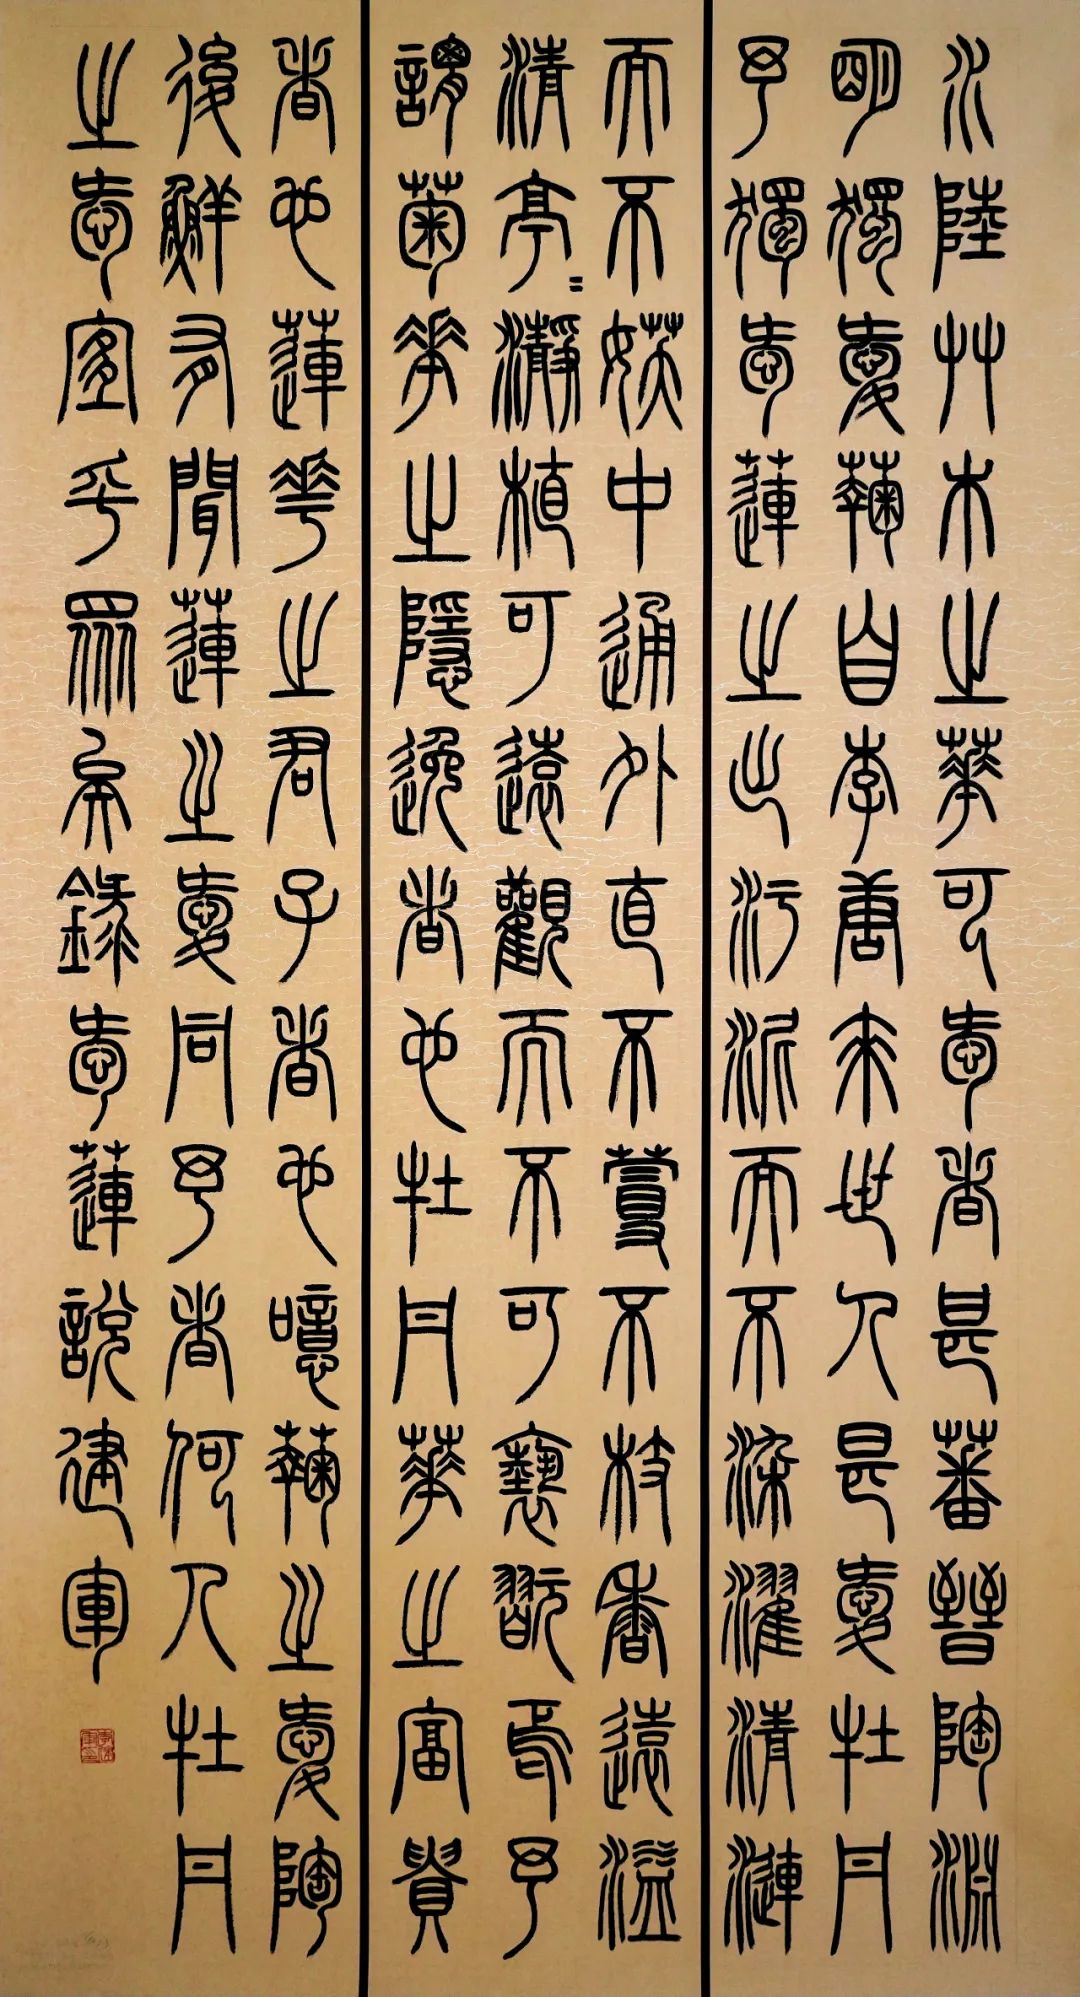 水陸艸木之華可愛者甚蕃晉陶淵
明獨愛菊自李唐來世人甚愛牡丹
予獨愛蓮之出汙泥而不染濯清漣
而不妖中通外直不蔓不枝香遠溢
清亭〻瀞植可遠觀而不可褻翫焉予
謂菊華之隱逸者也牡丹華之富貴
者也蓮華之君子者也噫菊之愛陶
後鮮有聞蓮之愛同予者何人牡丹
之愛宜乎眾矣錄愛蓮說建軍